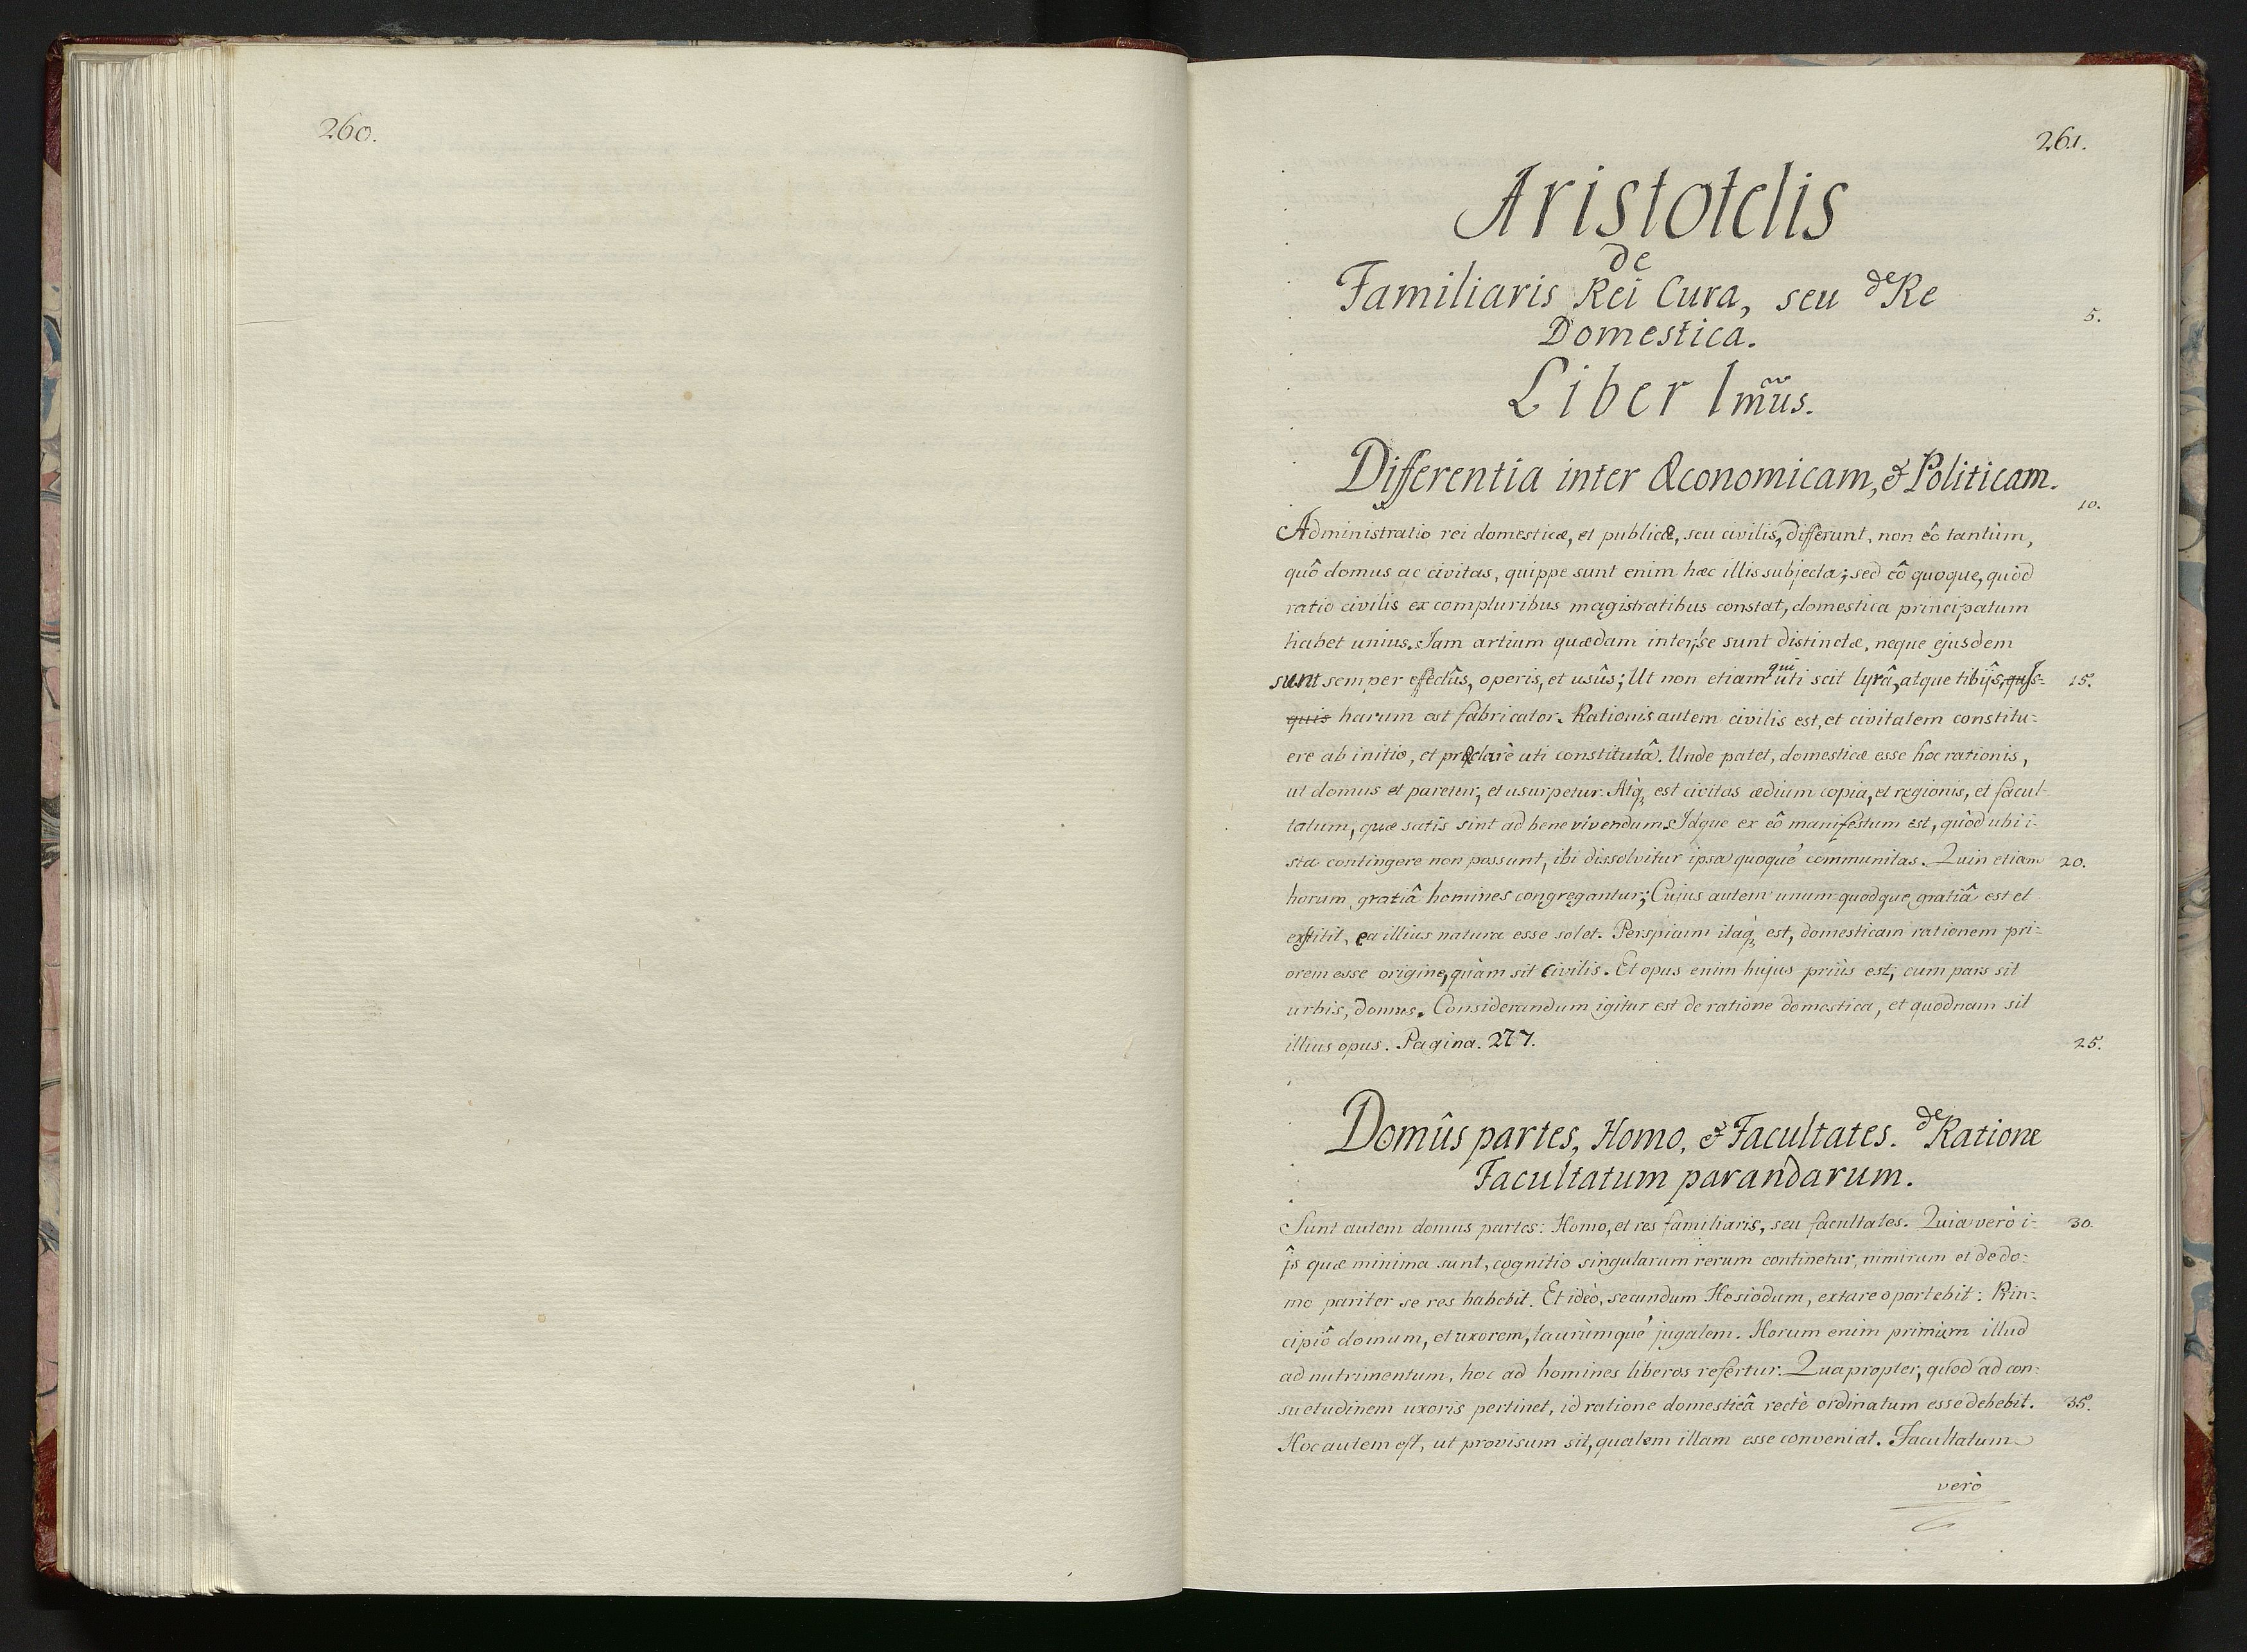 260.
261.
Aristotelis
de
Familiaris Rei Cura, seu de Re
5.
Domestica.
Liber I mus.
Differentia inter Œconomicam, & Politicam.
10.
Administratio rei domesticæ, et publicæ, seu civilis, differunt, non eô tantùm,
quô domus ac civitas, quippe sunt enim hæc illis subjecta; sed eô quoque, quòd
ratio civilis ex compluribus magistratibus constat, domestica principatum
habet unius. Jam artium quædam inter se sunt distinctæ, neque ejusdem
sunt semper effectûs, operis, et usûs; Ut non etiam qui uti scit lyrâ, atque tibijs, quis- 15.
quis harum est fabricator. Rationis autem civilis est, et civitatem constitu-
ere ab initio, et præclarè uti constitutâ. Unde patet, domesticæ esse hoc rationis,
ut domus et paretur, et usurpetur. Atq3 est civitas ædium copia, et regionis, et facul-
tatum, quæ satis sint ad bene vivendum. Idque ex eô manifestum est, quòd ubi i-
sta contingere non possunt, ibi dissolvitur ipsa quoque communitas. Quin etiam 20.
horum gratiâ homines congregantur; Cujus autem unumquodque gratiâ est et
exstitit, ea illius natura esse solet. Perspicuum itaq3 est, domesticam rationem pri-
orem esse origine, quàm sit Civilis. Et opus enim hujus priùs est, cum pars sit
urbis, domus. Considerandum igitur est de ratione domestica, et quodnam sit
illius opus. Pagina. 277. 25.
Domûs partes, Homo, & Facultates. de Ratione
Facultatum parandarum.
Sunt autem domus partes: Homo, et res familiaris, seu facultates. Quia verò i- 30.
js quæ minima sunt, cognitio singularum rerum continetur, nimirum et de do-
mo pariter se res habebit. Et ideò, secundum Hesiodum, extare oportebit: Prin-
cipiô domum, et uxorem, taurùmque jugalem. Horum enim primum illud
ad nutrimentum, hoc ad homines liberos refertur. Quapropter, quod ad con-
suetudinem uxoris pertinet, id ratione domesticâ rectè ordinatum esse debebit. 35.
Hoc autem est, ut provisum sit, qualem illam esse conveniat. Facultatum
verò